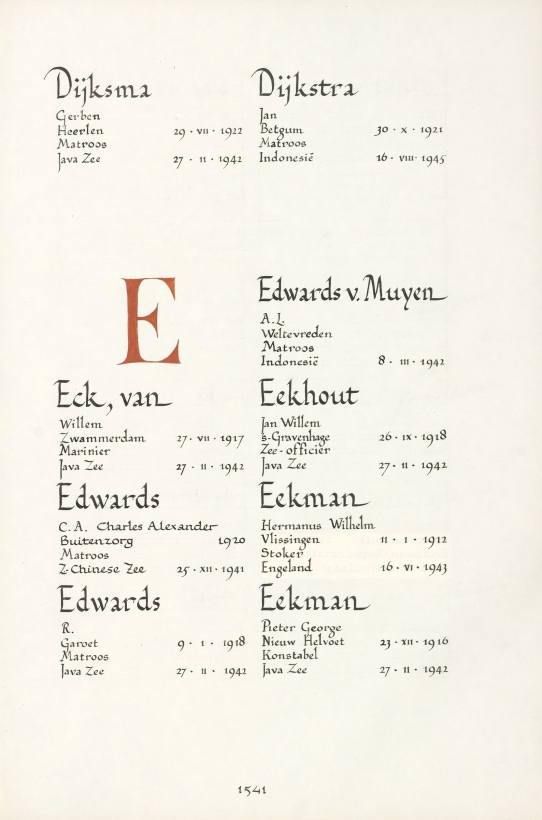 Dijksma
Gerben
Heerlen 29 · VII · 1922
Matroos
Java Zee 27 · II · 1942
Dijkstra
Jan
Betgum 30 · X · 1921
Matroos
Indonesië 16 · VIII · 1945
E
Eck, van
Willem
Zwammerdam 27 · VII · 1917
Marinier
Java Zee 27 · II · 1942
Edwards
C. A. Charles Alexander
Buitenzorg 1920
Matroos
Z. Chinese Zee 25 · XII · 1941
Edwards
R.
Garoet 9 · I · 1918
Matroos
Java Zee 27 · II · 1942
Edwards v. Muyen
A.L.
Weltevreden
Matroos
Indonesië 8 · III · 1942
Eekhout
Jan Willem
's-Gravenhage 26 · IX · 1918
Zee-officier
Java Zee 27 · II · 1942
Eekman
Hermanus Wilhelm
Vlissingen 11 · 1 · 1912
Stoker
Engeland 16 · VI · 1943
Eekman
Pieter George
Nieuw Helvoet 23 · XII · 1916
Konstabel
Java Zee 27 · II · 1942
1541